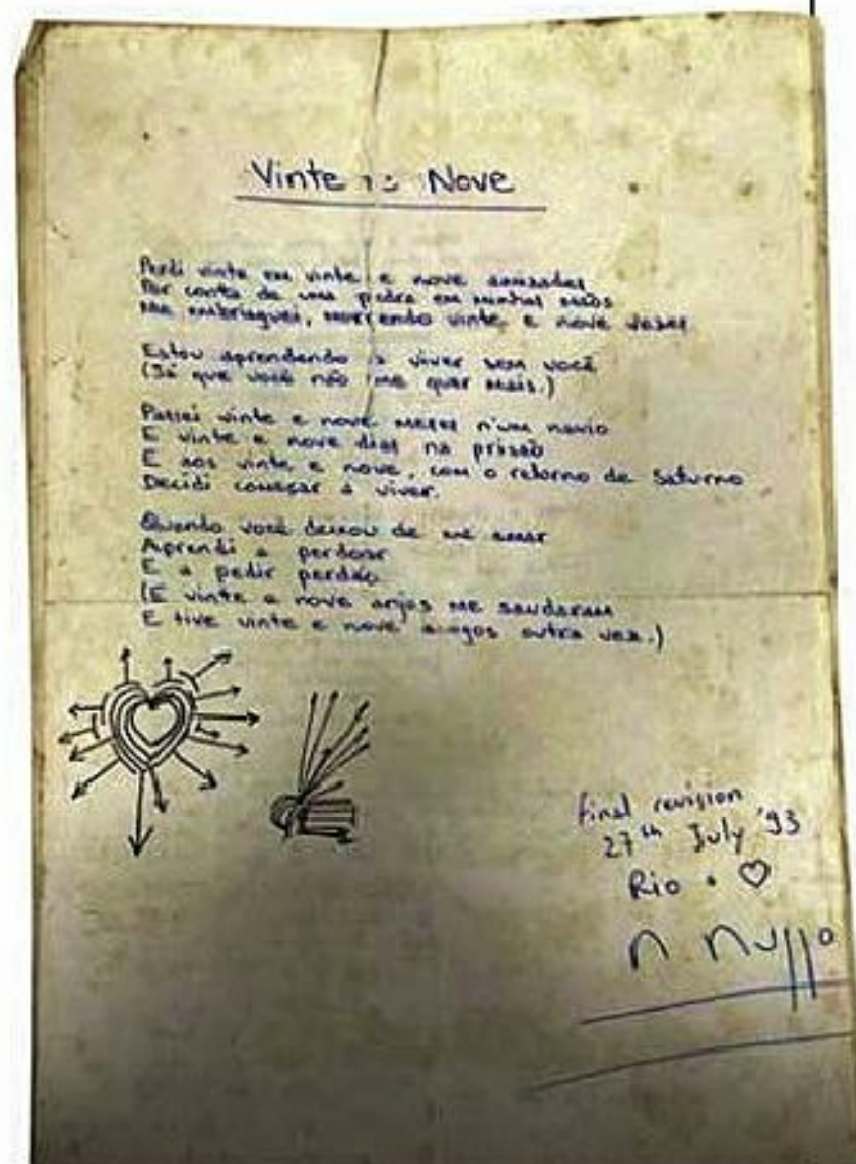 Vinte e Nove
Perdi vinte em vinte e nove amizades
Por conta de uma pedra em minhas mãos
Me embriaguei, morrendo vinte e nove vezes
Estou aprendendo a viver sem você
(Já que você não me quer mais.)
Passei vinte e nove meses n'um navio
E vinte e nove dias na prisão
E aos vinte e nove, com o retorno de Saturno
Decidi começar a viver.
Quando você deixou de me amar
Aprendi a perdoar
E a pedir perdão
(E vinte e nove anjos me saudaram
E tive vinte e nove amigos outra vez.)
final revision
27th July '93
Rio • ♡